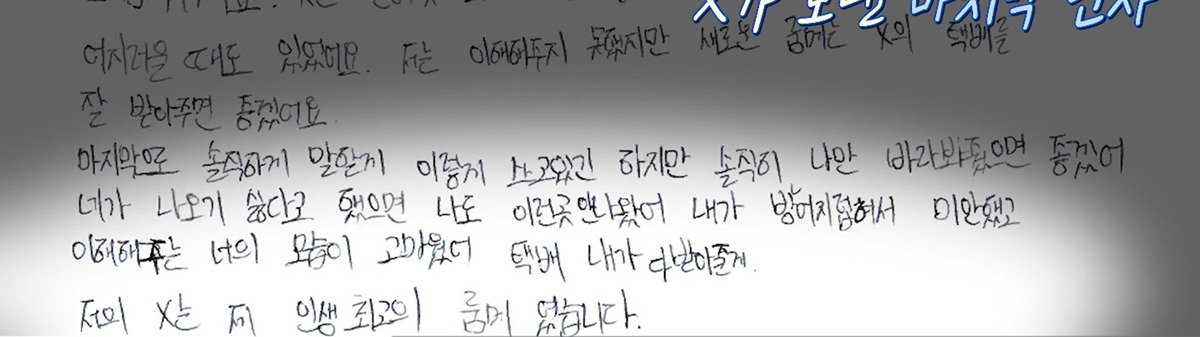 X가 보낸 마지막 인사
어지러울 때도 있었어요. 저는 이해해주지 못했지만 새로운 룸메는 X의 택배를
잘 받아주면 좋겠어요.
마지막으로 솔직하게 말할게 이렇게 쓰고있긴 하지만 솔직히 나만 바라봐줬으면 좋겠어
네가 나오기 싫다고 했으면 나도 이런곳 안나왔어 내가 방어지럽혀서 미안했고
이해해주는 너의 모습이 고마웠어 택배 내가 다받아줄게.
저의 X는 제 인생 최고의 룸메 였습니다.